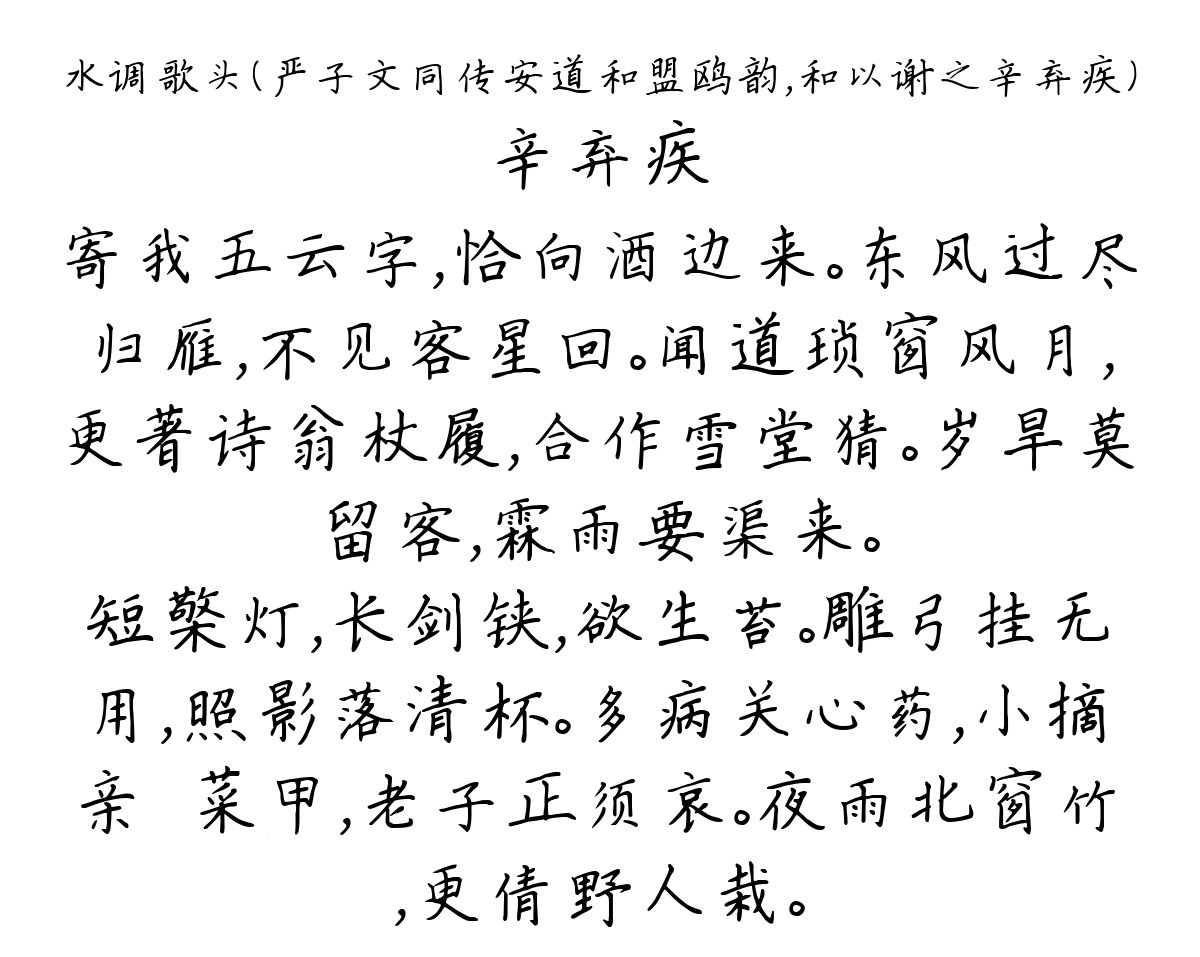 水调歌头(严子文同传安道和盟鸥韵,和以谢之辛弃疾)
辛弃疾
寄我五云字,恰向酒边来。东风过尽
归雁,不见客星回。闻道琐窗风月,
更著诗翁杖履,合作雪堂猜。岁旱莫
留客,霖雨要渠来。
短檠灯,长剑铗,欲生苔。雕弓挂无
用,照影落清杯。多病关心药,小摘
亲 菜甲,老子正须哀。夜雨北窗竹
,更倩野人栽。